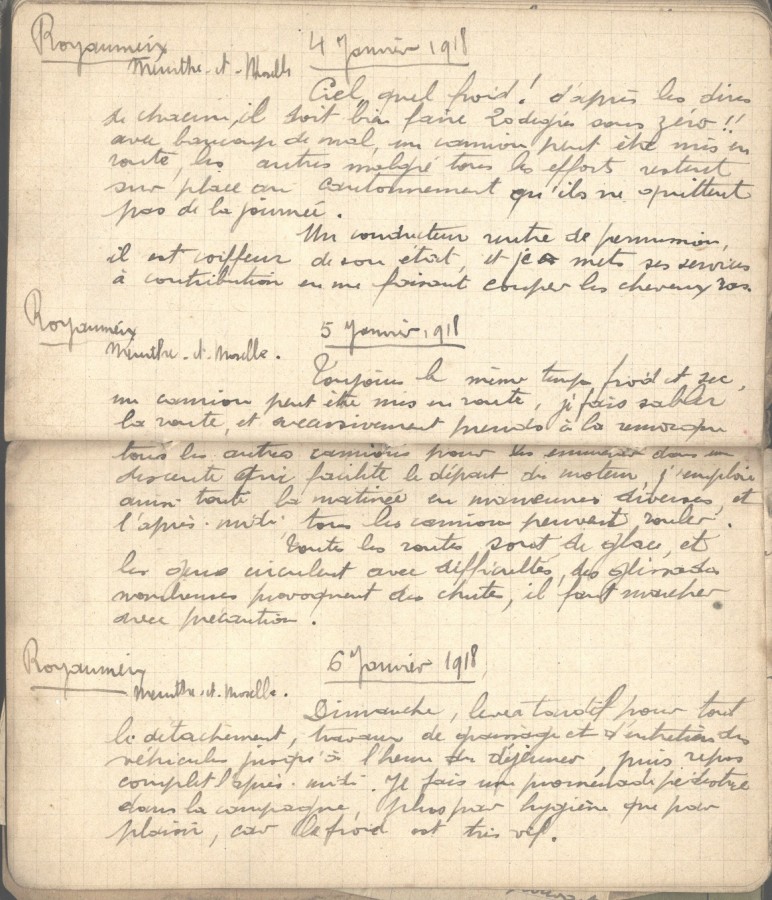 Royaumeix 4 Janvier 1918
Meurthe-et-Moselle
Ciel, quel froid! d'après les dires
de chacun, il doit bien faire 20 degrés sous zéro!!
avec beaucoup de mal, un camion peut être mis en
route, les autres malgré tous les efforts restent
sur place au cantonnement qu'ils ne quittent
pas de la journée.
Un conducteur rentre de permission,
il est coiffeur de son état, et je mets ses services
à contribution en me faisant couper les cheveux ras.
Royaumeix 5 Janvier 1918
Meurthe-et-Moselle.
Toujours le même temps froid et sec,
un camion peut être mis en route, j'fais sabler
la route, et successivement prends à la remorque
tous les autres camions pour les emmener dans une
descente qui facilite le départ du moteur, j'emploie
ainsi toute la matinée en manœuvres diverses, et
l'après-midi tous les camions peuvent rouler.
Toutes les routes sont de glace, et
les gens circulent avec difficultés, des glissades
nombreuses provoquent des chutes, il faut marcher
avec précaution.
Royaumeix 6 Janvier 1918
Meurthe-et-Moselle.
Dimanche, lever tardif pour tout
le détachement, travaux de graissage et d'entretien des
véhicules jusqu'à l'heure du déjeuner, puis repos
complet l'après-midi. Je fais une promenade pédestre
dans la campagne, plus par hygiène que par
plaisir, car le froid est très vif.